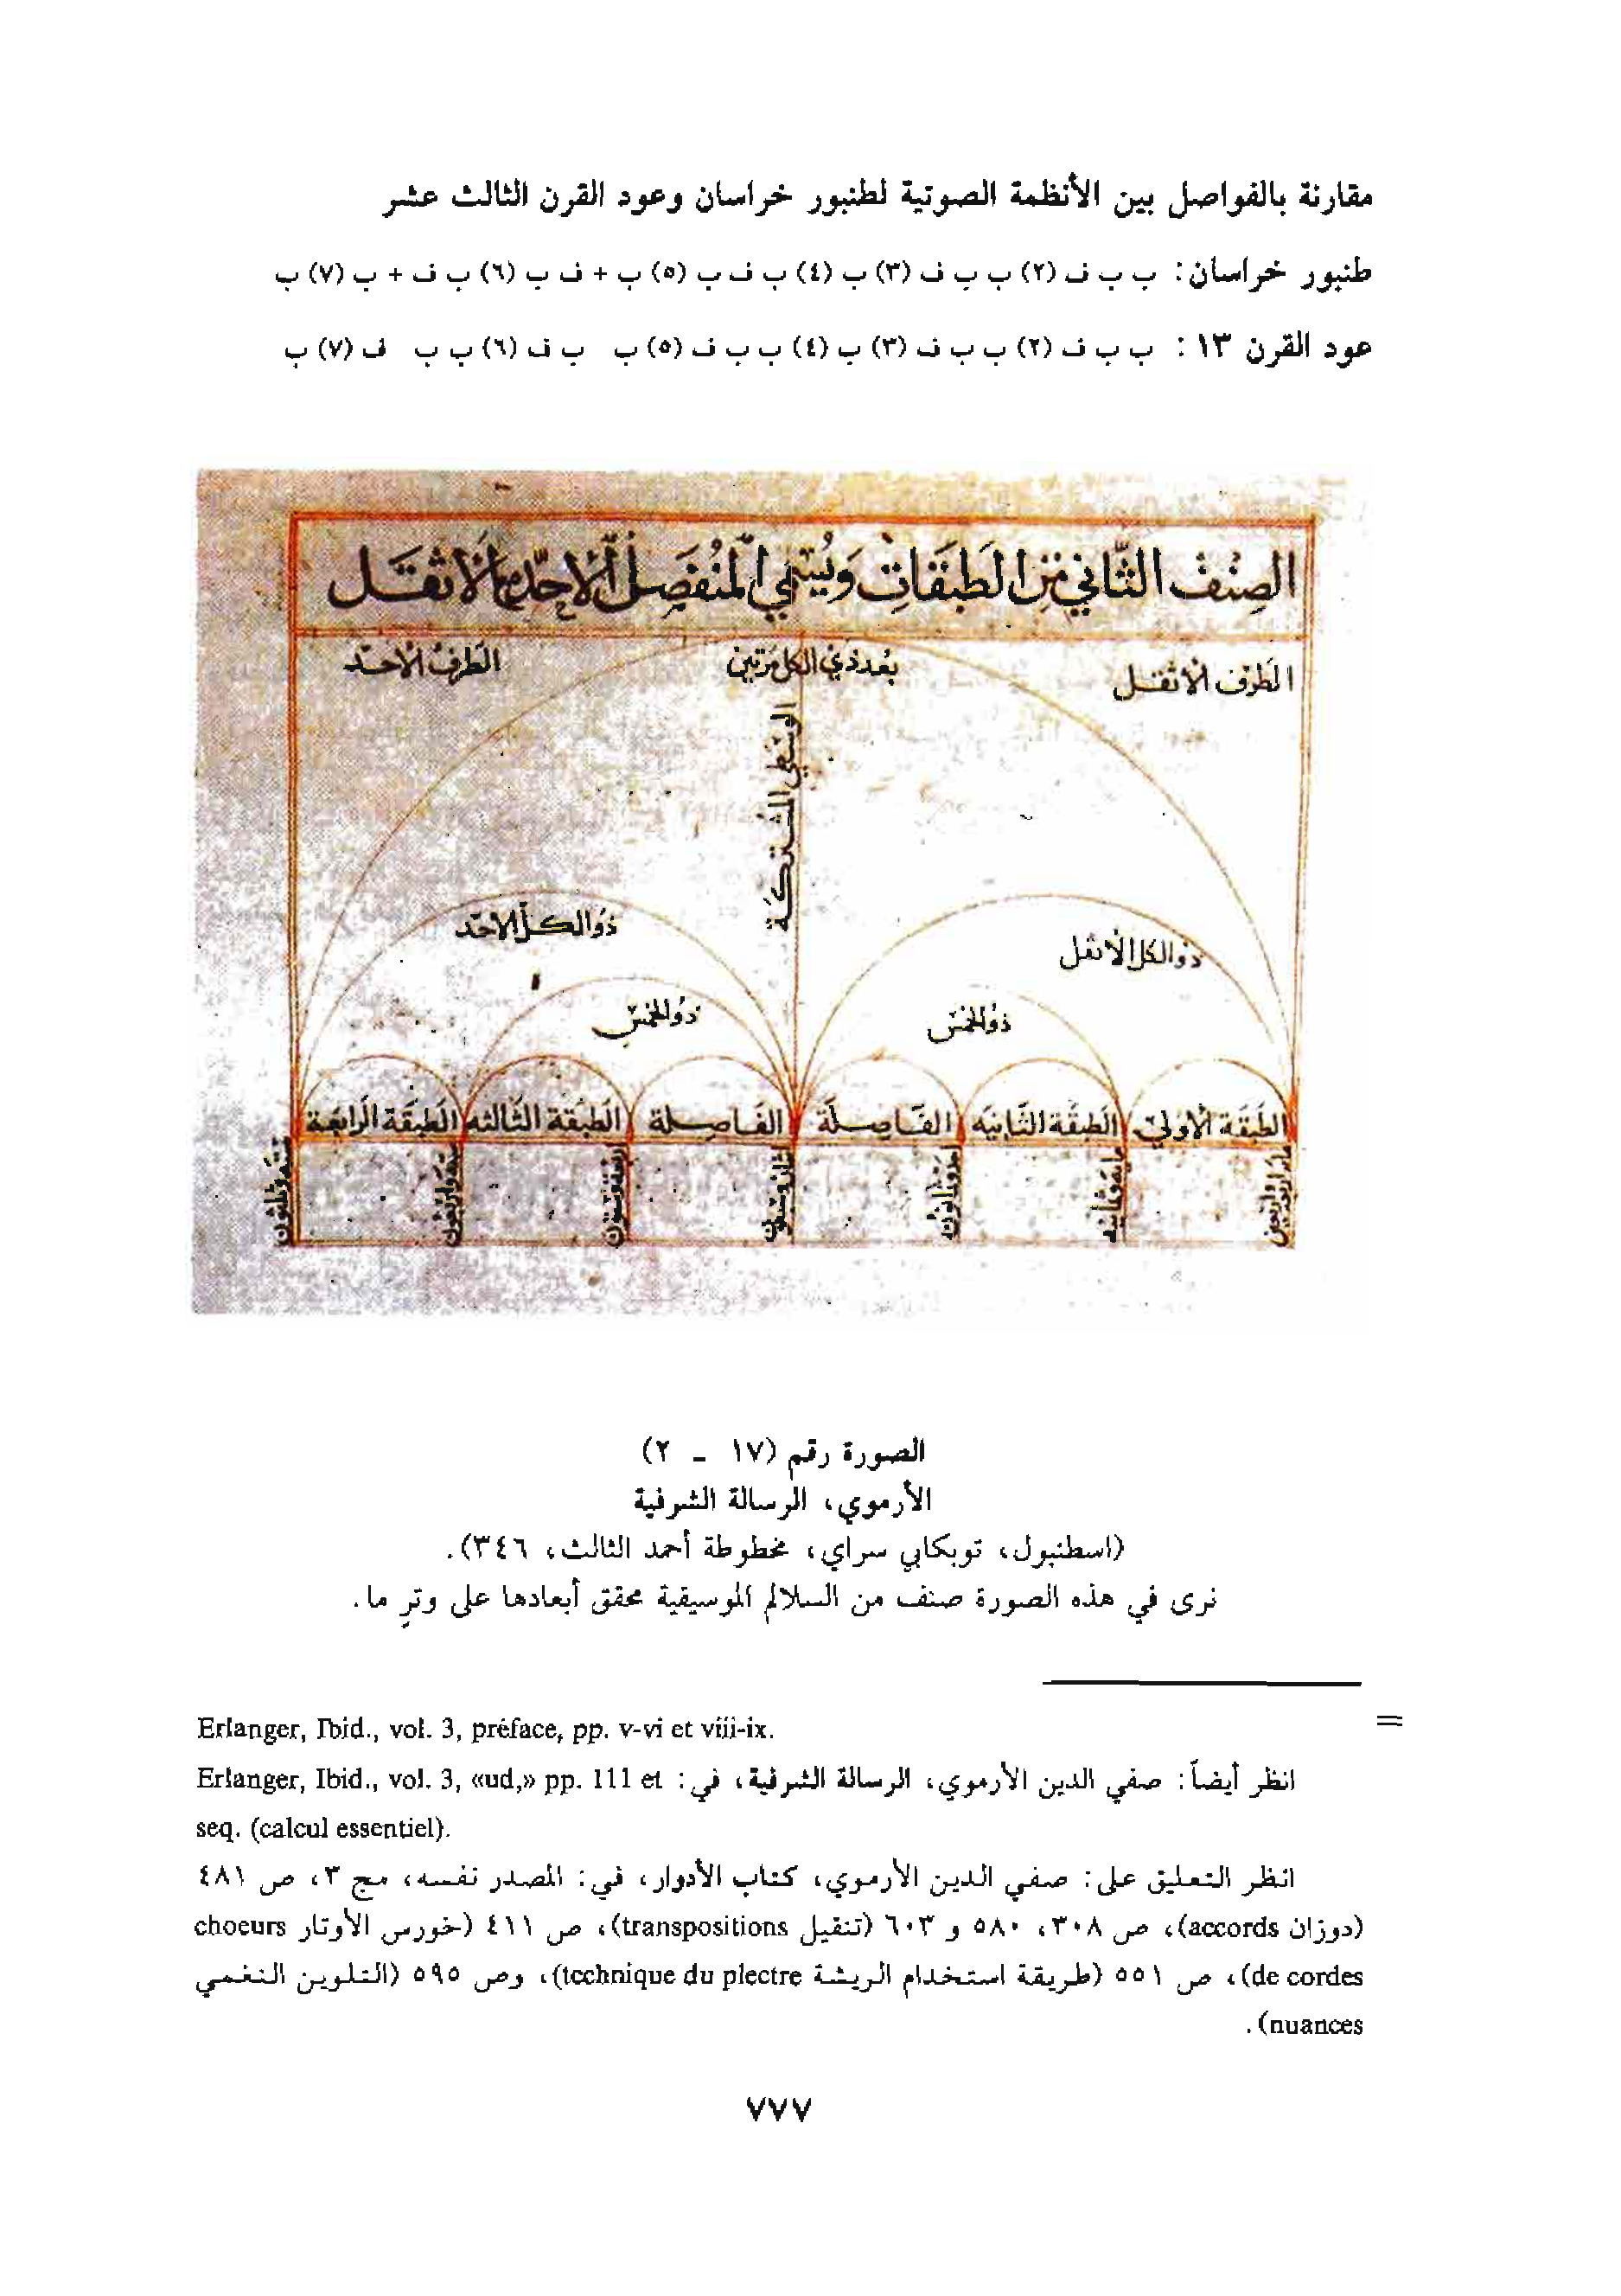 مقارنة بالفواصل بين الأنظمة الصوتية لطنبور خراسان وعود القرن الثالث عشر
طنبور خراسان: ب ب ف (٢) ب ب ف (٣) ب (٤) ب ف ب (٥) ب + ف ب (٦) ب ف + ب (٧) ب
عود القرن ١٣ : ب ب ف (٢) ب ب ف (٣) ب (٤) ب ب ف (٥) ب ب ف (٦) ب ب ف (٧) ب
الصِنفُ الثَّاني مِن الطبَقَاتِ وَيُسَمّي المُنفَصِل الأحدّ والأثقَل
الطرفُ الأثقل
بُعد ذي الكل مرتين
الطرفُ الأحدّ
الوسطي المشتركة
ذو الكل الأثقل
ذُو الكل الاحدّ
ذُو الخمسِ
ذُو الخمسِ
الطبقة الأولي
الطبقة الثانيه
الفاصلة
الفاصلة
الطبقة الثالثه
الطبقة الرابعة
مايه وثمانيه
احد وثمانون
اثنان وسبعون
الصورة رقم (١٧ - ٢)
الأرموي، الرسالة الشرفية
(اسطنبول، توبكابي سراي، مخطوطة أحمد الثالث، ٣٤٦).
نرى في هذه الصورة صنف من السلالم الموسيقية محقق أبعادها على وترٍ ما.
= Erlanger, Ibid., vol. 3, préface, pp. v-vi et viii-ix.
انظر أيضاً: صفي الدين الأرموي، الرسالة الشرفية، في: Erlanger, Ibid., vol. 3, «ud,» pp. 111 et
seq. (calcul essentiel).
انظر التعليق على: صفي الدين الأرموي، كتاب الأدوار، في: المصدر نفسه، مج ٣، ص ٤٨١
(دوزان accords)، ص ٣٠٨، ٥٨٠ و ٦٠٣ (تنقيل transpositions)، ص ٤١١ (خورس الأوتار choeurs
de cordes)، ص ٥٥١ (طريقة استخدام الريشة technique du plectre)، وص ٥٩٥ (التلوين النغمي
nuances).
٧٧٧